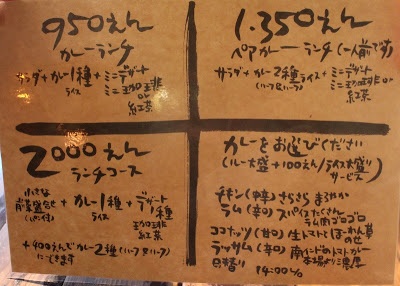 950えん
カレーランチ
サラダ+カレー1種+ミニデザート
ライス ミニ珈琲
or
紅茶
1.350えん
ペアカレー ランチ(一人前です)
サラダ+カレー2種+ミニデザート
ライス
(ハーフ&ハーフ) ミニ珈琲 or
紅茶
2000えん
ランチコース
小さな
前菜盛合せ+カレー1種+デザート
(パン付) ライス 1種
珈琲
or
紅茶
+400えんでカレー2種(ハーフ&ハーフ)
にできます
カレーをお選びください
(ルー大盛+100えん/ライス大盛り
サービス)
チキン(中辛)さらさら まろやか
ラム(辛口)スパイスたくさん
ラム肉ゴロゴロ
ココナッツ(甘口)生トマトとほーれん草
のせ
ラッサム(辛口)南インドのトマトカレー
本場より濃厚
日替り 14:00%